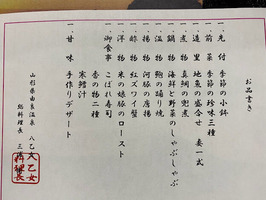 お品書き
一 先付 季節の小鉢
一 前菜 季節の珍味三種
一 造里 地魚の盛合せ 妻一式
一 煮物 真鯛の兜煮
一 鍋物 海鮮と野菜のしゃぶしゃぶ
一 温物 鮑の踊り焼
一 揚物 河豚の唐揚
一 酢物 紅ズワイ蟹
一 洋物 米の娘豚のロースト
一 御食事 こぼれ寿司
香の物二種
寒鱈汁
一 甘味 手作りデザート
山形県由良温泉 八乙女
総料理長 三